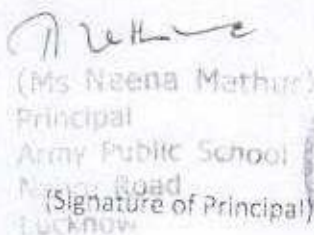 (Ms Neena Mathur)
Principal
Army Public School
Road
(Signature of Principal)
Lucknow